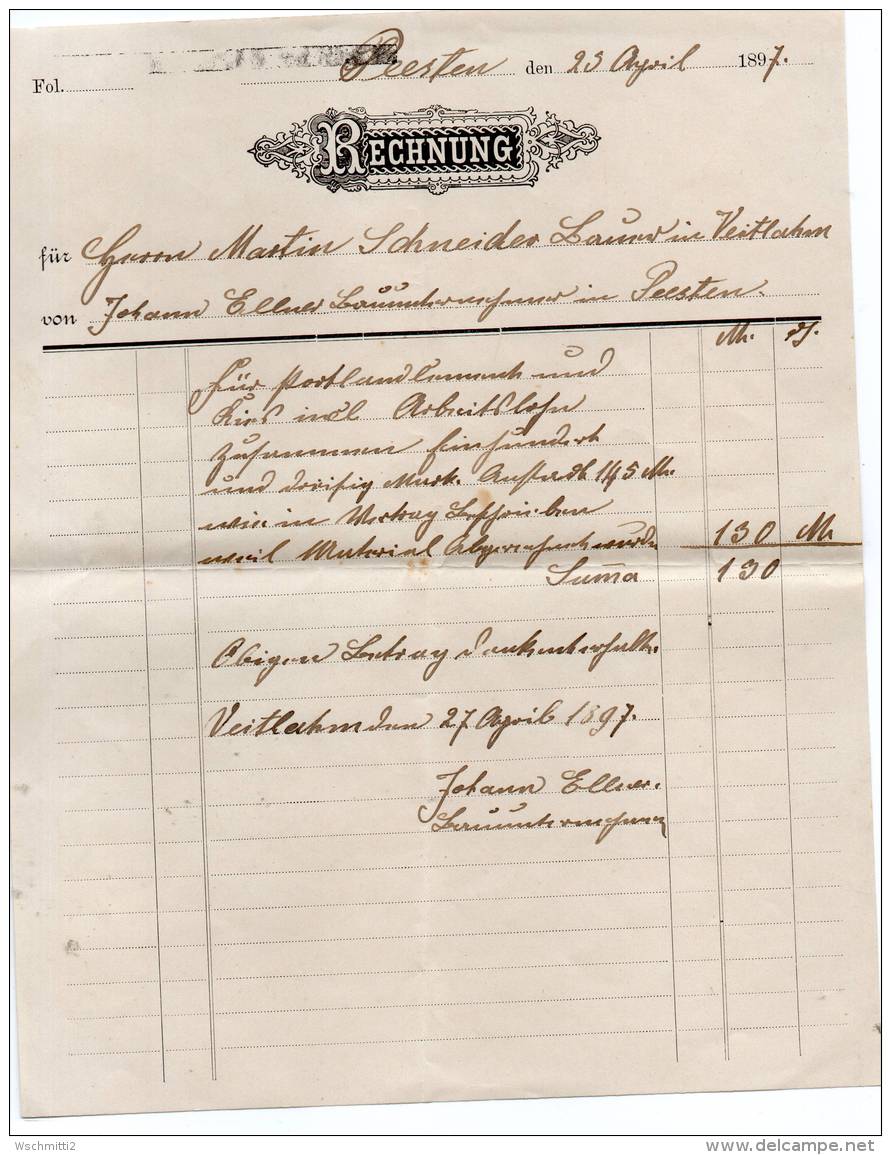 Fol.
Peesten den 23 April 1897.
RECHNUNG
für Herrn Martin Schneider Bauer in Veitlahm
von Johann Ellner Bauunternehmer in Peesten.
M. Pf.
Für Portlandcement und
Kies incl Arbeitslohn
zusammen Einhundert
und dreißig Mark. Anstadt 145 M.
wie in Vertrag Beschrieben
weil Material Abgerechnet wurde 130 M
Suma 130
Obigen Betrag dankent erhalten
Veitlahm den 27 April 1897.
Johann Ellner.
Bauunternehmer
Wschmitti2
www.delcampe.net